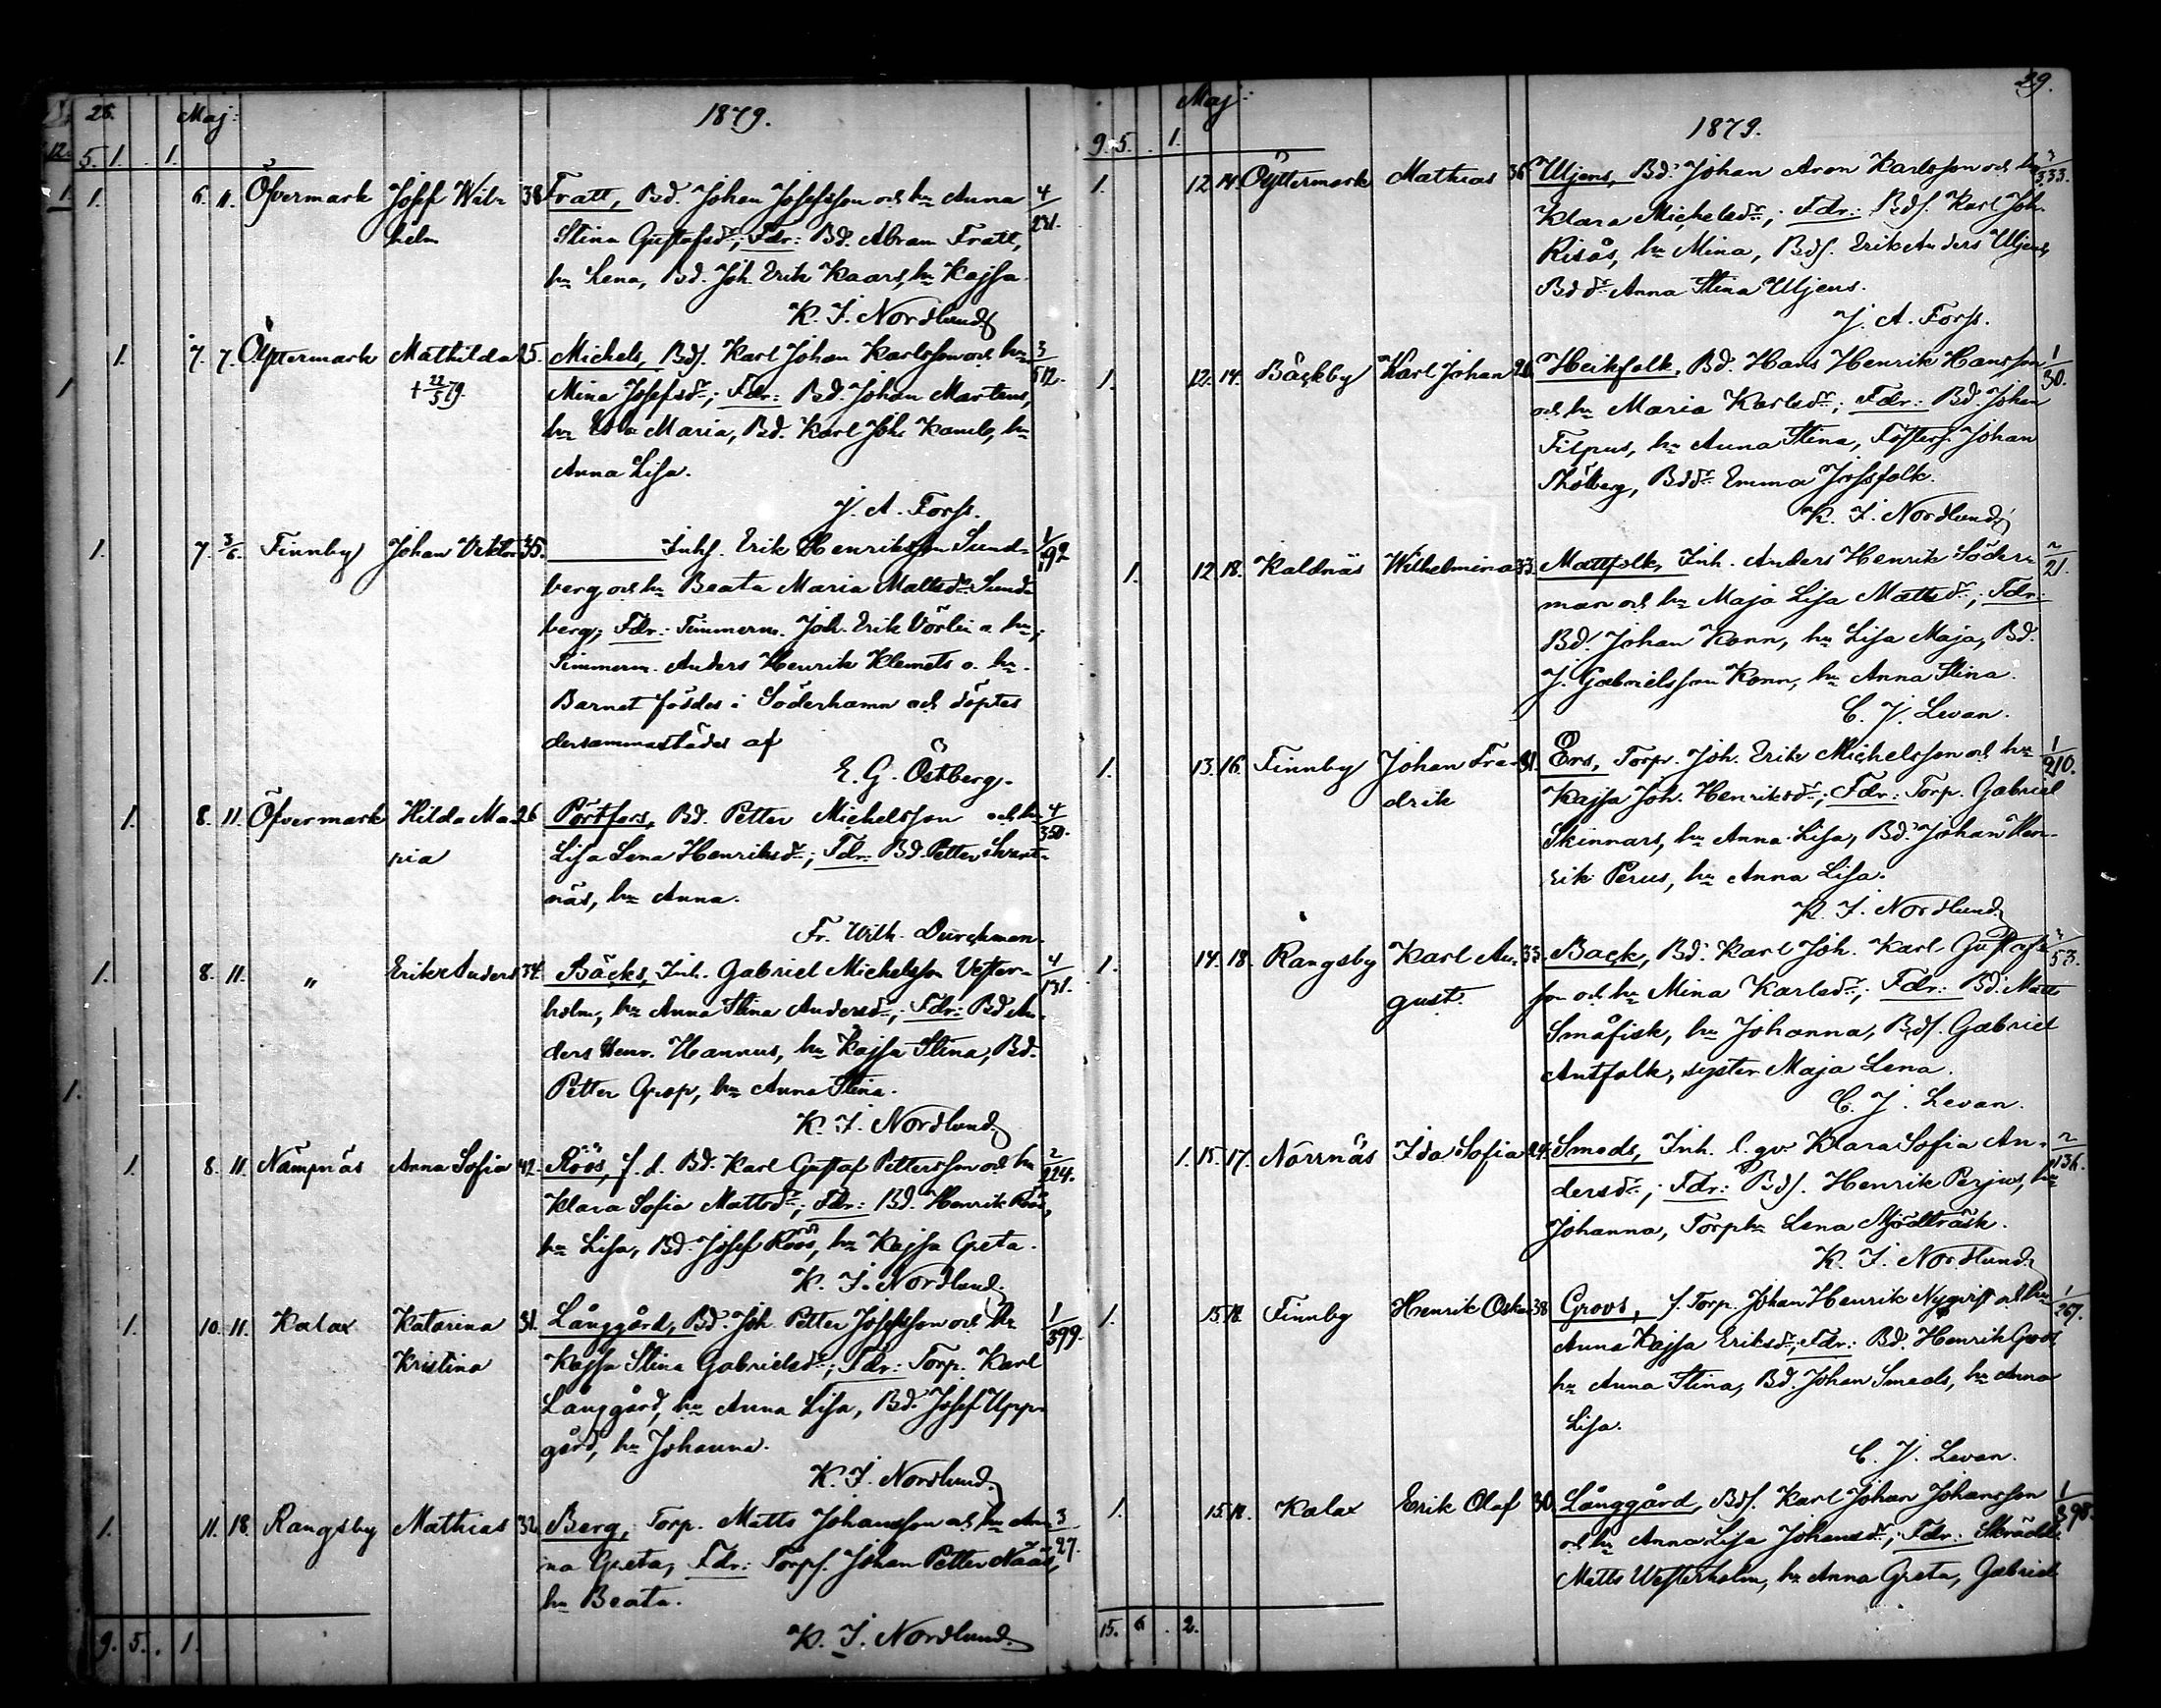 28. Maj: 1879.
12. 5. 1. . 1.
1. 1. 6. 11. Öfvermark Josef Wil- 38 Fratt, Bd. Johan Josefsson och hu Anna 4/231.
helm Stina Gustafsdr; Fdr: Bd. Abram Fratt,
hu Lena, Bd. Joh. Erik Kaars, hu Kajsa.
K. I. Nordlund
1 1. 7. 7. Yttermark Mathilda 25. Michels, Bds. Karl Johan Karlsson och hu 3/512.
+ 22/5 79. Mina Josefsdr; Fdr: Bd. Johan Martens,
hu Maria, Bd. Karl Joh. hu
Anna Lisa.
J. A. Forss.
1. 7. 3/6. Finnby Johan Viktor 35. Inhs. Erik Henriksson Sund- 1/492
berg och hu Beata Maria Mattsdr Sund-
berg; Fdr: Timmerm. Joh. Erik Vörlin o. hu,
Timmerm. Anders Henrik Klemets o. hu.
Barnet föddes i Söderhamn och döptes
dersammastädes af
E. G. Östberg.
1. 8. 11. Öfvermark Hilda Ma- 26 Pörtfors, Bd. Petter Michelsson och hu 4/350.
ria Lisa Lena Henriksdr; Fdr: Bd. Petter Svart-
näs, hu Anna.
Fr. Wilh. Durchman.
1. 8. 11. " Erik Anders 34. Bäcks, Inh. Gabriel Michelsson Vester- 4/131.
holm, hu Anna Stina Andersdr; Fdr: Bd An-
ders Henr. Hannus, hu Kajsa Stina, Bd.
1. Petter Grop, hu Anna Stina.
K. I. Nordlund
1. 8. 11. Nämpnäs Anna Sofia 42. Röös, f. d. Bd. Karl Gustaf Pettersson och hu 2/224.
Klara Sofia Mattsdr; Fdr: Bd. Henrik Röös,
hu Lisa, Bd. Josef Röös, hu Kajsa Greta.
K. I. Nordlund
1. 10. 11. Kalax Katarina 31. Långgård, Bd. Joh. Petter Josefsson och hu 1/399.
Kristina Kajsa Stina Gabrielsdr; Fdr: Torp. Karl
Långgård, hu Anna Lisa, Bd. Josef Upp-
gård, hu Johanna.
K. I. Nordlund
1. 11. 18. Rangsby Mathias 32 Berg, Torp. Matts Johansson och hu An- 3/27.
na Greta, Fdr: Torps. Johan Petter Nääs,
hu Beata.
9. 5. . 1. K. I. Nordlund
Maj: 1879. 29.
9. 5. . 1.
1. 12. 14. Yttermark Mathias 36 Uljens, Bd. Johan Aron Karlsson och hu 3/333.
Klara Michelsdr; Fdr: Bds. Karl Joh.
Risås, hu Mina, Bds. Erik Anders Uljens,
Bd dr Anna Stina Uljens.
J. A. Forss.
1. 12. 14. Bäckby Karl Johan 28. Heikfolk, Bd. Hans Henrik Hansson 1/30.
och hu Maria Karlsdr; Fdr: Bd. Johan
Filpus, hu Anna Stina, Fosters. Johan
Sköberg, Bddr Emma Jossfolk.
K. I. Nordlund
1. 12. 18. Kaldnäs Wilhelmina 33. Mattfolk, Inh. Anders Henrik Söder- 2/21.
man och hu Maja Lisa Mattsdr; Fdr:
Bd. Johan Konn, hu Lisa Maja, Bd.
J. Gabrielsson Konn, hu Anna Stina.
C. J. Levan.
1. 13. 16. Finnby Johan Fre- 31. Ers, Torp. Joh. Erik Michelsson och hu 1/210.
drik Kajsa Joh. Henriksdr; Fdr: Torp. Gabriel
Skinnars, hu Anna Lisa, Bd. Johan Hen-
rik Perus, hu Anna Lisa.
K. I. Nordlund
1. 14. 18. Rangsby Karl Au- 33. Back, Bd. Karl Joh. Karl Gustafs- 3/53.
gust. son och hu Mina Karlsdr; Fdr: Bd. Matts
Småfisk, hu Johanna, Bds. Gabriel
Antfolk, syster Maja Lena.
C. J. Levan.
1. 15. 17. Norrnäs Ida Sofia 24. Smeds, Inh. l. qv. Klara Sofia An- 2/136.
dersdr; Fdr: Bds. Henrik Perjus, hu
Johanna, Torphu Lena Mjödträsk.
K. I. Nordlund
1. 15. 18. Finnby Henrik Oskar 38 Groos, f. Torp. Johan Henrik Nyqvist och hu 1/267.
Anna Kajsa Eriksdr; Fdr: Bd. Henrik Groos,
hu Anna Stina, Bd. Johan Smeds, hu Anna
Lisa.
C. J. Levan.
1. 15. 18. Kalax Erik Olof 30. Långgård, Bds. Karl Johan Johansson 1/398.
och hu Anna Lisa Johansdr; Fdr: Skrädd.
Matts Westerholm, hu Anna Greta, Gabriel
15. 6 . 2.